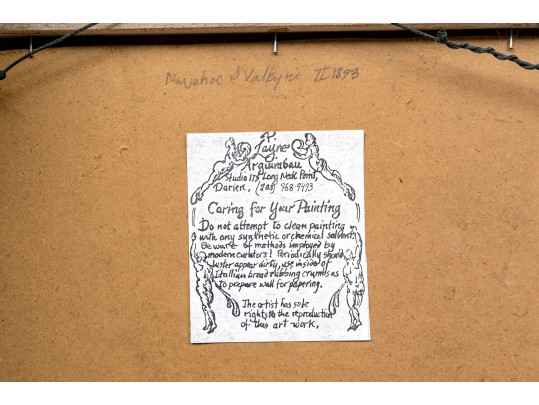 Navahoe & Valkyrie II 1893
P.
Layne
J.
Arguimbau
Studio 173 Long Neck Point,
Darien, (203) 968-9493
Caring for Your Painting
Do not attempt to clean painting
with any synthetic or chemical solvent.
Beware of methods imployed by
modern curators! Periodically should
luster appear dirty, use inside of
Itallian bread rubbing crumbs as
to prepare wall for papering.
The artist has sole
rights to the reproduction
of this art work.